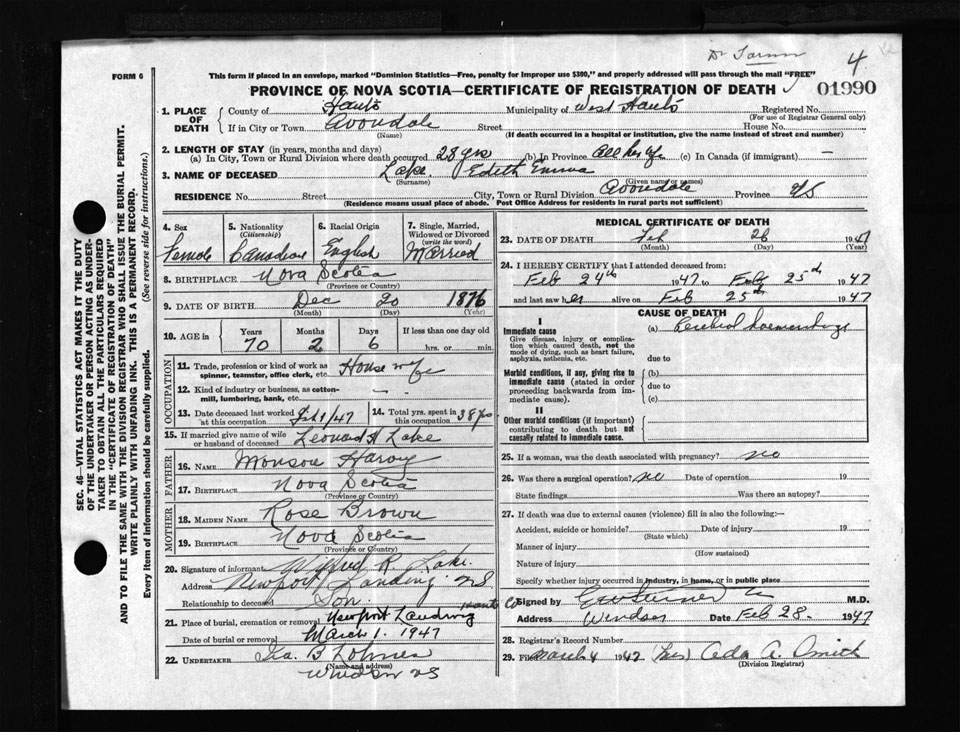 4
FORM 6
This form if placed in an envelope, marked "Dominion Statistics—Free, penalty for improper use $300," and properly addressed will pass through the mail "FREE"
PROVINCE OF NOVA SCOTIA—CERTIFICATE OF REGISTRATION OF DEATH
01990
1. PLACE OF DEATH
County of Hants Municipality of West Hants Registered No.
(For use of Registrar General only)
If in City or Town Avondale Street House No.
(Name) (If death occurred in a hospital or institution, give the name instead of street and number)
2. LENGTH OF STAY (in years, months and days)
(a) In City, Town or Rural Division where death occurred 28 yrs (b) In Province all her life (c) In Canada (if immigrant) —
3. NAME OF DECEASED Lake Edith Emma
(Surname) (Given name or names)
RESIDENCE No. Street City, Town or Rural Division Avondale Province NS
(Residence means usual place of abode. Post Office Address for residents in rural parts not sufficient)
SEC. 46—VITAL STATISTICS ACT MAKES IT THE DUTY
OF THE UNDERTAKER OR PERSON ACTING AS UNDER-
TAKER TO OBTAIN ALL THE PARTICULARS REQUIRED
IN THE "CERTIFICATE OF REGISTRATION OF DEATH"
AND TO FILE THE SAME WITH THE DIVISION REGISTRAR WHO SHALL ISSUE THE BURIAL PERMIT.
WRITE PLAINLY WITH UNFADING INK. THIS IS A PERMANENT RECORD.
Every item of information should be carefully supplied. (See reverse side for instructions.)
4. Sex
Female
5. Nationality
(Citizenship)
Canadian
6. Racial Origin
English
7. Single, Married, Widowed or Divorced
(write the word)
Married
8. BIRTHPLACE Nova Scotia
(Province or Country)
9. DATE OF BIRTH Dec 20 1876
(Month) (Day) (Year)
10. AGE in
Years Months Days If less than one day old
70 2 6 hrs. or min.
OCCUPATION
11. Trade, profession or kind of work as spinner, teamster, office clerk, etc. House wife
12. Kind of industry or business, as cotton-mill, lumbering, bank, etc. —
13. Date deceased last worked at this occupation Feb 1/47
14. Total yrs. spent in this occupation 38 yrs
15. If married give name of wife or husband of deceased Leonard H Lake
FATHER
16. NAME Monson Harvy
17. BIRTHPLACE Nova Scotia
(Province or Country)
MOTHER
18. MAIDEN NAME Rose Brown
19. BIRTHPLACE Nova Scotia
(Province or Country)
20. Signature of informant Wilfred R. Lake
Address Newport Landing NS
Relationship to deceased Son
21. Place of burial, cremation or removal Newport Landing Hants Co
Date of burial or removal March 1. 1947
22. UNDERTAKER Ira. B Lohnes
(Name and address)
Windsor NS
MEDICAL CERTIFICATE OF DEATH
23. DATE OF DEATH Feb 26 1947
(Month) (Day) (Year)
24. I HEREBY CERTIFY that I attended deceased from:
Feb 24th 1947 to Feb 25th 1947
and last saw her alive on Feb 25th 1947
CAUSE OF DEATH
I
Immediate cause
Give disease, injury or complication which caused death, not the mode of dying, such as heart failure, asphyxia, asthenia, etc.
(a) Cerebral haemorrhage
due to
Morbid conditions, if any, giving rise to immediate cause (stated in order proceeding backwards from immediate cause).
(b)
due to
(c)
II
Other morbid conditions (if important) contributing to death but not causally related to immediate cause.
25. If a woman, was the death associated with pregnancy? no
26. Was there a surgical operation? no Date of operation 19
State findings Was there an autopsy?
27. If death was due to external causes (violence) fill in also the following:—
Accident, suicide or homicide? Date of injury 19
(State which)
Manner of injury
(How sustained)
Nature of injury
Specify whether injury occurred in industry, in home, or in public place
Signed by M.D.
Address Windsor Date Feb 28 1947
28. Registrar's Record Number
29. Filed March 4 1947 (Mrs) Ada A. Smith
(Division Registrar)